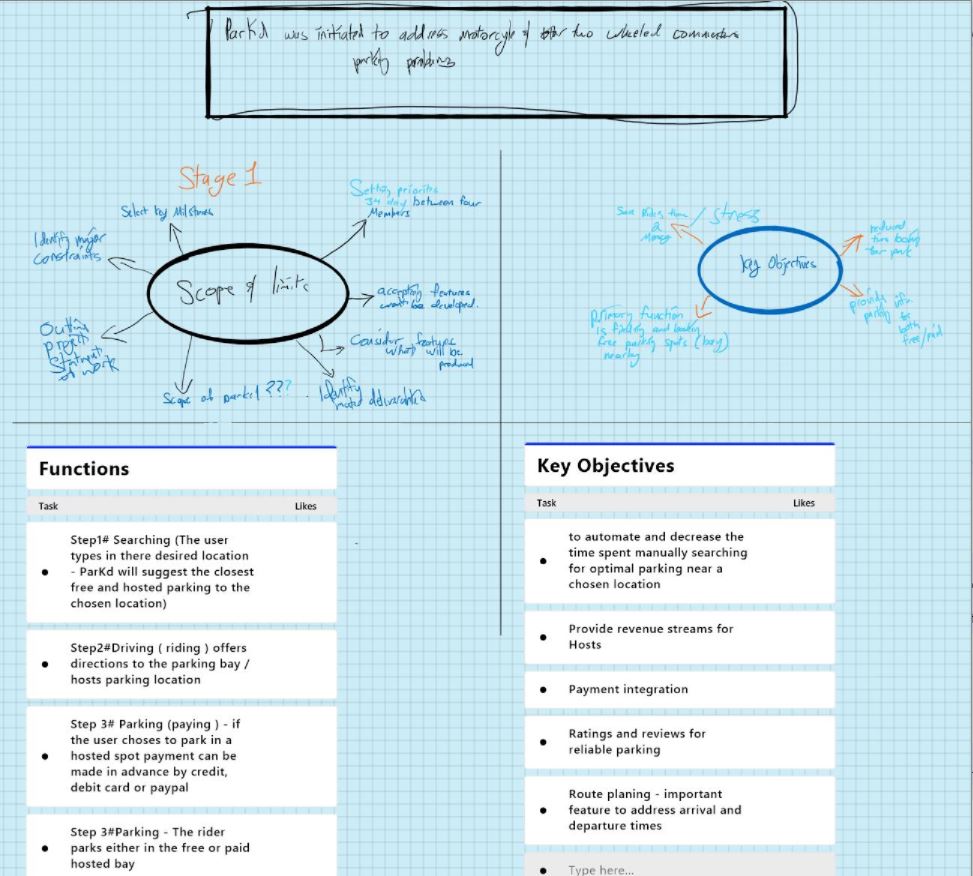 ParKd was initiated to address motorcycle & two wheeled commuters
parking problems
Stage 1
Select key Milstones
Setting priorites
34 day between four
Members
Identify major
constraints
Scope & limits
accepting features
won't be developed.
Outline
project
Statment
of work
Consider features
what will be
produced
Scope of parkd ???
Identify
deliverables
Save Rides time / stress
&
Money
reduced
time looking
for park
Key Objectives
Primary function
is finding and booking
free parking spots (bay)
nearby
provide info
parking for
both
free/paid
Functions
Task Likes
Step1# Searching (The user
types in there desired location
- ParKd will suggest the closest
free and hosted parking to the
chosen location)
Step2#Driving ( riding ) offers
directions to the parking bay /
hosts parking location
Step 3# Parking (paying ) - if
the user choses to park in a
hosted spot payment can be
made in advance by credit,
debit card or paypal
Step 3#Parking - The rider
parks either in the free or paid
hosted bay
Key Objectives
Task Likes
to automate and decrease the
time spent manually searching
for optimal parking near a
chosen location
Provide revenue streams for
Hosts
Payment integration
Ratings and reviews for
reliable parking
Route planing - important
feature to address arrival and
departure times
Type here...